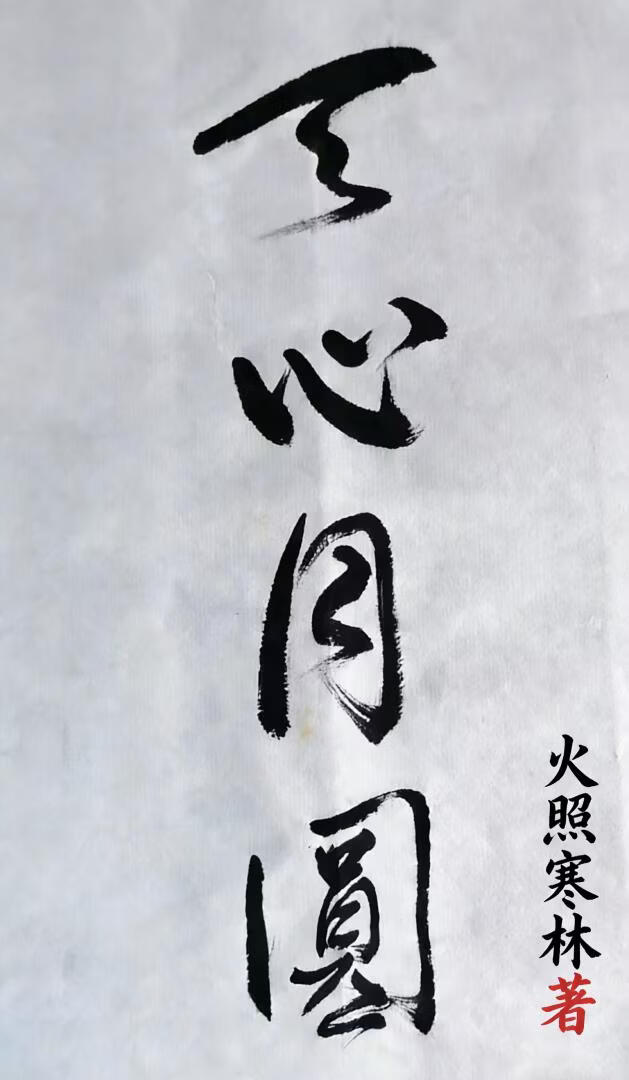 天心月圓
火照寒林著